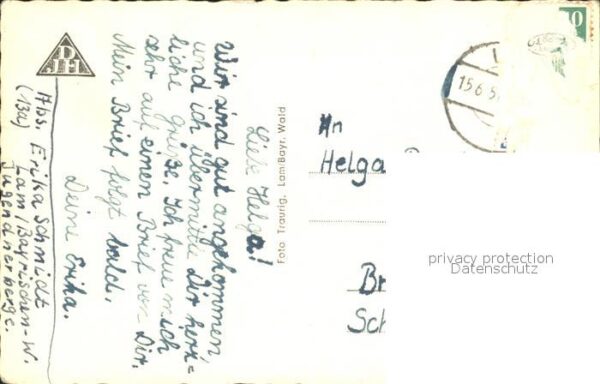 Liebe Helga!
Wir sind gut angekommen,
und ich übermittle Dir herz=
liche Grüße. Ich freue mich
sehr auf einen Brief von Dir.
Mein Brief folgt bald.
Deine Erika.
Abs. Erika Schmidt
(13a) Lam/Bayrischen-W.
Jugendherberge.
DJH
Foto Traurig, Lam/Bayr. Wald
15.6.5
10
An
Helga
Br
Sch
privacy protection
Datenschutz